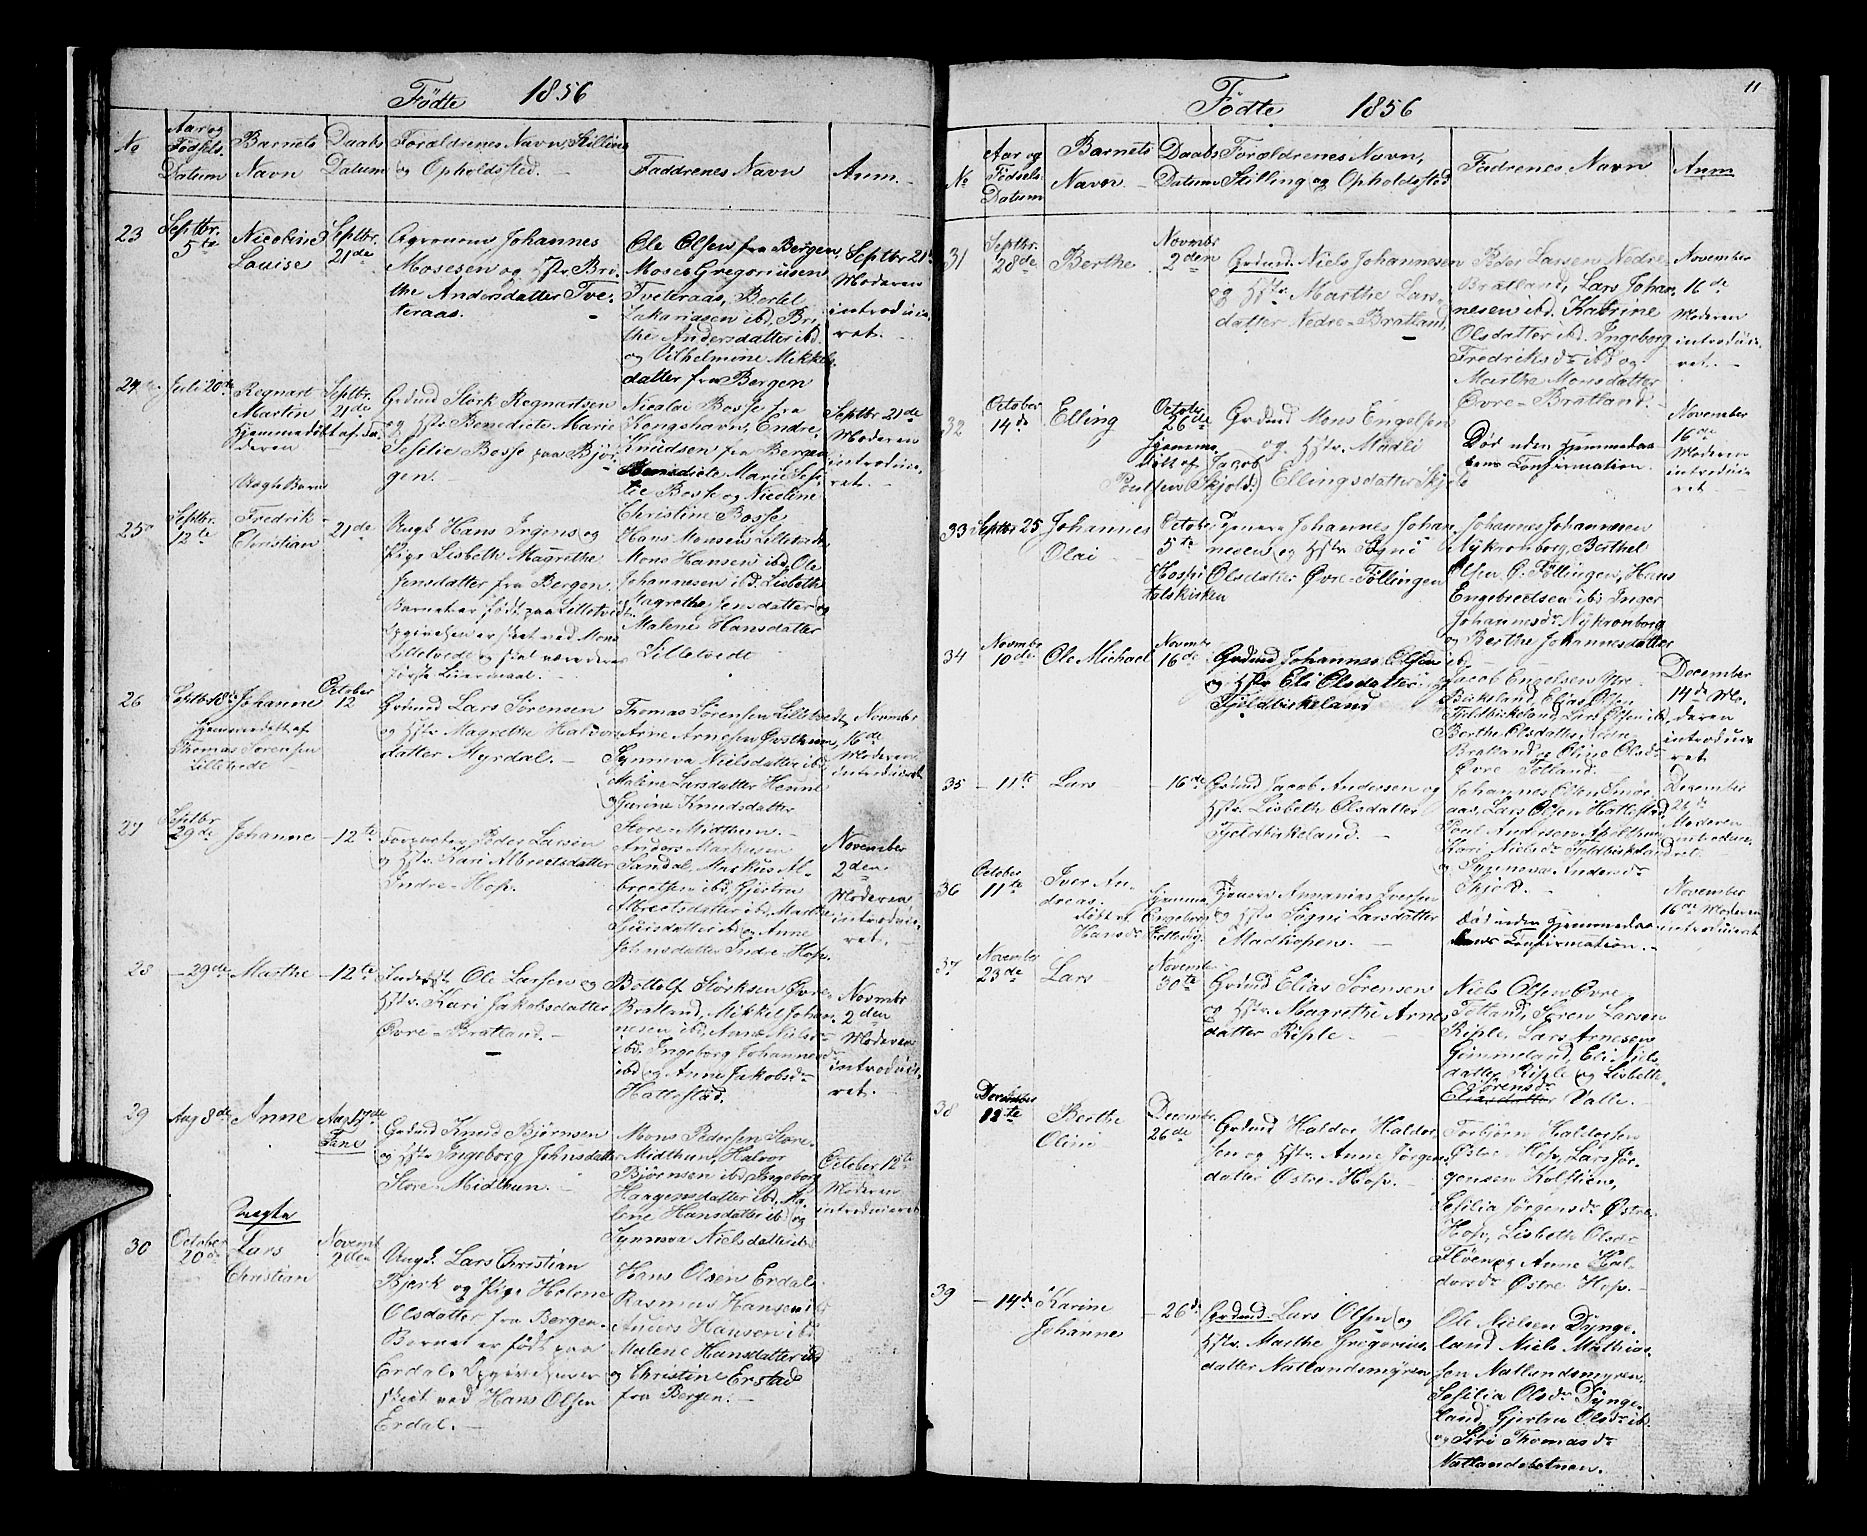 Födte 1856
No
Aar og Födsels Datum
Barnets Navn
Daabs Datum
Forældrenes Navn, Stilling og Opholdsted.
Faddrenes Navn
Anm.
23
Septbr. 5te
Nicoline Louise
Septbr. 21de
Johannes
Mosesen og Hstr. Bri-
the Andersdatter Tve-
teraas.
Ole Olsen fra Bergen,
Moses Gregoriussen
Tveteraas, Bertel
Zakariasen ibd. Bri-
the Andersdatter ibd.
og Vilhelmine Mikkels-
datter fra Bergen
Septbr 21de
Moderen
introducie-
ret.
24
Juli 20de
Regnart
Martin
hjemmedöbt af Fa-
deren
Septbr. 21de
Grdmd Störk Regnartsen
og Hstr Benedicte Marie
Sesilie Bosse paa Björ-
gen.
Nicolai Bosse fra
Kongshavn, Endre
Knudsen fra Bergen
Benedicte Marie Sesi-
lie Bosse og Nicoline
Christine Bosse
Septbr 21de
Moderen
introducie-
ret.
25
Septbr. 12te
Uægte Barn
Fredrik
Christian
21de
Ungk Hans Irgens og
Pige Lisbeth Magrethe
Jensdatter fra Bergen.
Barnet er födt paa Lilletvedt.
Opgivelsen er skeet ved Mons
Lilletvedt og skal være deres
förste Leiermaal.
Hans Monsen Lilletvedt
Mons Hansen ibd, Ole
Johannesen ibd, Lisbeth
Magrethe Jensdatter og
Malene Hansdatter
Lilletvedt
26
Johanne
hjemmedöbt af
Thomas Sörensen
Lilletvedt
October 12
Grdmd Lars Sörensen
og Hstr Magrethe Haldor-
datter Myrdal.
Thomas Sörensen Lilletvedt,
Arne Arnesen
Synnøva Nielsdatter ibd
Malene Larsdatter
og Gurine Knudsdatter
Store-Midthun.
Novmbr
16de
Moderen
introduceret
27
Septbr 29de
Johanne
12te
Peder Larsen
og Hstr. Kari Albretsdatter
Indre-Hop.
Anders Markusen
Sandal, Markus Al-
bretsen ibd, Gjertru
Albretsdatter ibd, Marthe
Sjursdatter ibd og Anne
Johnsdatter Indre Hop.
November
2den
Moderen
introducie-
ret.
28
29de
Marthe
12te
Inderst Ole Larsen og
Hstr. Kari Jakobsdatter
Övre-Bratland.
Bottolf Störksen Övre-
Bratland, Mikkel Johan-
nesen ibd, Anne Nielsdr
ibd. Ingeborg Johannesdr
ibd og Anne Jakobsdr
Hattestad.
Novmbr
2den
Moderen
introducie-
ret.
29
Aug 8de
Anne
Aug 17de
Fane
Grdmd Knud Björnsen
og Hstr Ingeborg Johnsdatter
Store-Midthun.
Mons Pedersen Store-
Midthun, Halvor
Björnsen ibd, Ingeborg
Haagensdatter ibd, Ma-
lene Hansdatter ibd og
Synnøva Nielsdatter ibd
October 12te
Moderen
introduceret
30
October 20de
Uægte
Lars
Christian
Novemb. 2den
Ungk. Lars Christian
Bjerk og Pige Helene
Olsdatter fra Bergen.
Barnet er födt paa
Erdal. Opgivelsen er
skeet ved Hans Olsen
Erdal.
Hans Olsen Erdal
Rasmus Hansen ibd
Anders Hansen ibd
Malene Hansdatter ibd
og Christine Erstad
fra Bergen.
11
Födte 1856
No
Aar og Födsels Datum
Barnets Navn
Daabs Datum
Forældrenes Navn, Stilling og Opholdsted
Fadrenes Navn
Anm
31
Septbr. 28de
Berthe
Novmbr 2den
Grdmd. Niels Johannesen
og Hstr. Marthe Lars-
datter Nedre-Bratland.
Peder Larsen Nedre-
Bratland, Lars Johan-
nesen ibd. Katrine
Olsdatter ibd. Ingeborg
Fredriksdr ibd og
Marthe Monsdatter
Övre-Bratland.
November
16de
Moderen
introducie-
ret.
32
October 14de
Elling
October 26de
hjemme-
döbt af Jacob
Poulsen Skjold.
Grdmd Mons Engelsen
og Hstr. Madli
Ellingsdatter
Död uden Hjemmedaa-
bens Confirmation.
November
16de
Moderen
introducie-
ret
33
Septbr 25
Johannes
Olai
October
5te
Hospi-
talskirken
Johannes Johan-
nesen og Hstr
Olsdatter Övre-Töllingen
Johannes Johannesen
Nykronborg, Berthel
Olsen Ö. Töllingen, Hans
Engebretsen ibd Inger
Johannesdr Nykronborg
og Berthe Johannesdatter
ibd.
34
Novmbr 10de
Ole Michael
Novmbr 16de
Grdmd Johannes Olsen
og Hstr Eli Olsdatter
Fjeldbirkeland
Jacob Engelsen
Birkeland, Elias Olsen
Fjeldbirkeland, Lars Olsen ibd,
Berthe Olsdatter
Bratland og Oline Olsdr
Övre Totland.
December
14de Mo-
deren
introducie-
ret
35
11te
Lars
16de
Grdmd Jacob Andersen og
Hstr. Lisbeth Olsdatter
Fjeldbirkeland.
Johannes Olsen Smör-
aas, Lars Olsen Hattestad,
Poul Andersen Apelthun
Kari Nielsdr Fjeldbirkeland
og Synnøva Andersdr
Skjold.
December
26de
Moderen
introduce-
ret.
36
October 11te
Iver An-
dreas.
döbt af
Hansdr
hjemme
Ingeborg
Ananias Iversen
og Hstr Signi Larsdatter
Madhopen.
Död uden Hjemmedaa-
bens Confirmation.
November
16de Moderen
introduceret
37
November 23de
Lars
Novembr 30te
Grdmd Elias Sörensen
og Hstr. Magrethe Arnes-
datter Riple.
Niels Olsen Övre-
Totland, Sören Larsen
Riple, Lars Arnesen
Gimmeland, Eli Niels-
datter Riple og Lisbeth
Sörensdr
Valle.
38
December 12te
Berthe
Oline
Decembr 26de
Grdmd Haldor Haldor-
sen og Hstr. Anne Jörgens-
datter Östre-Hop.
Torbjörn Haldorsen
Östre-Hop, Lars Jör-
gensen Kolstien,
Sesilia Jörgensdr Östre-
Hop, Lisbeth Olsdr
Flöen og Anne Hal-
dorsdr Östre Hop.
39
14de
Karine
Johanne
26de
Grdmd. Lars Olsen og
Hstr. Marthe Gregorius-
datter Natlandsmyren
Ole Nielsen Dynge-
land Niels Mathias-
sen Natlandsmyren,
Sesilia Olsdr Dynge-
land, Gjertru Olsdr ibd.
og Siri Thomasdr
Natlandsbotnen.